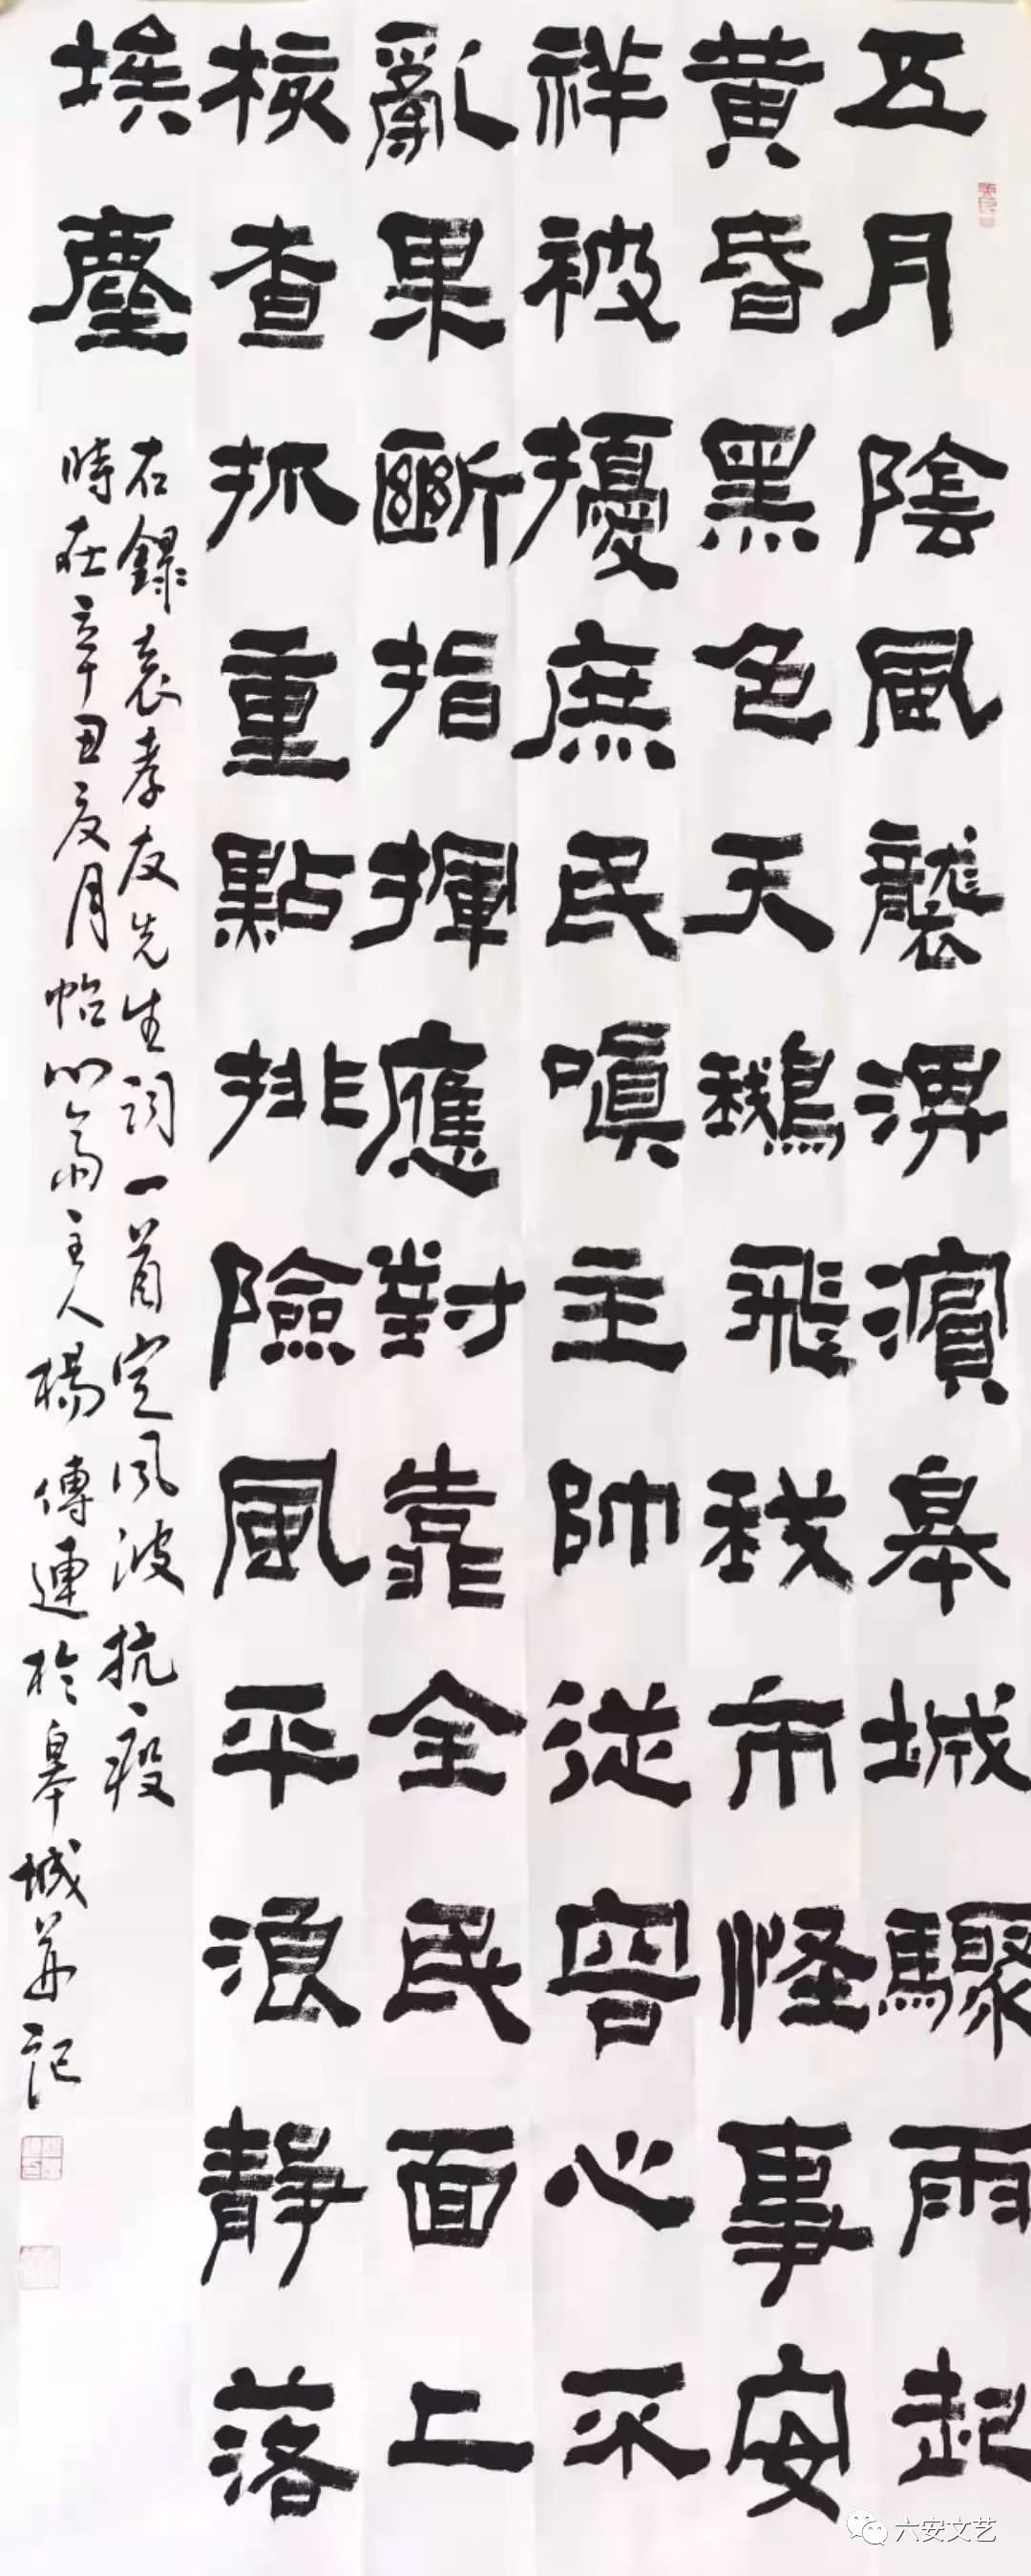 五月陰風襲淠濱皋城驟雨起
黃昏黑色天鵝飛我市怪事安
祥被擾庶民嗔主帥從容心不
亂果斷指揮應對靠全民面上
核查抓重點排險風平浪靜落
埃塵
右錄袁孝友先生詞一首定風波抗疫
時在辛丑夏月怡心齋主人楊傳連於皋城並記
六安文艺